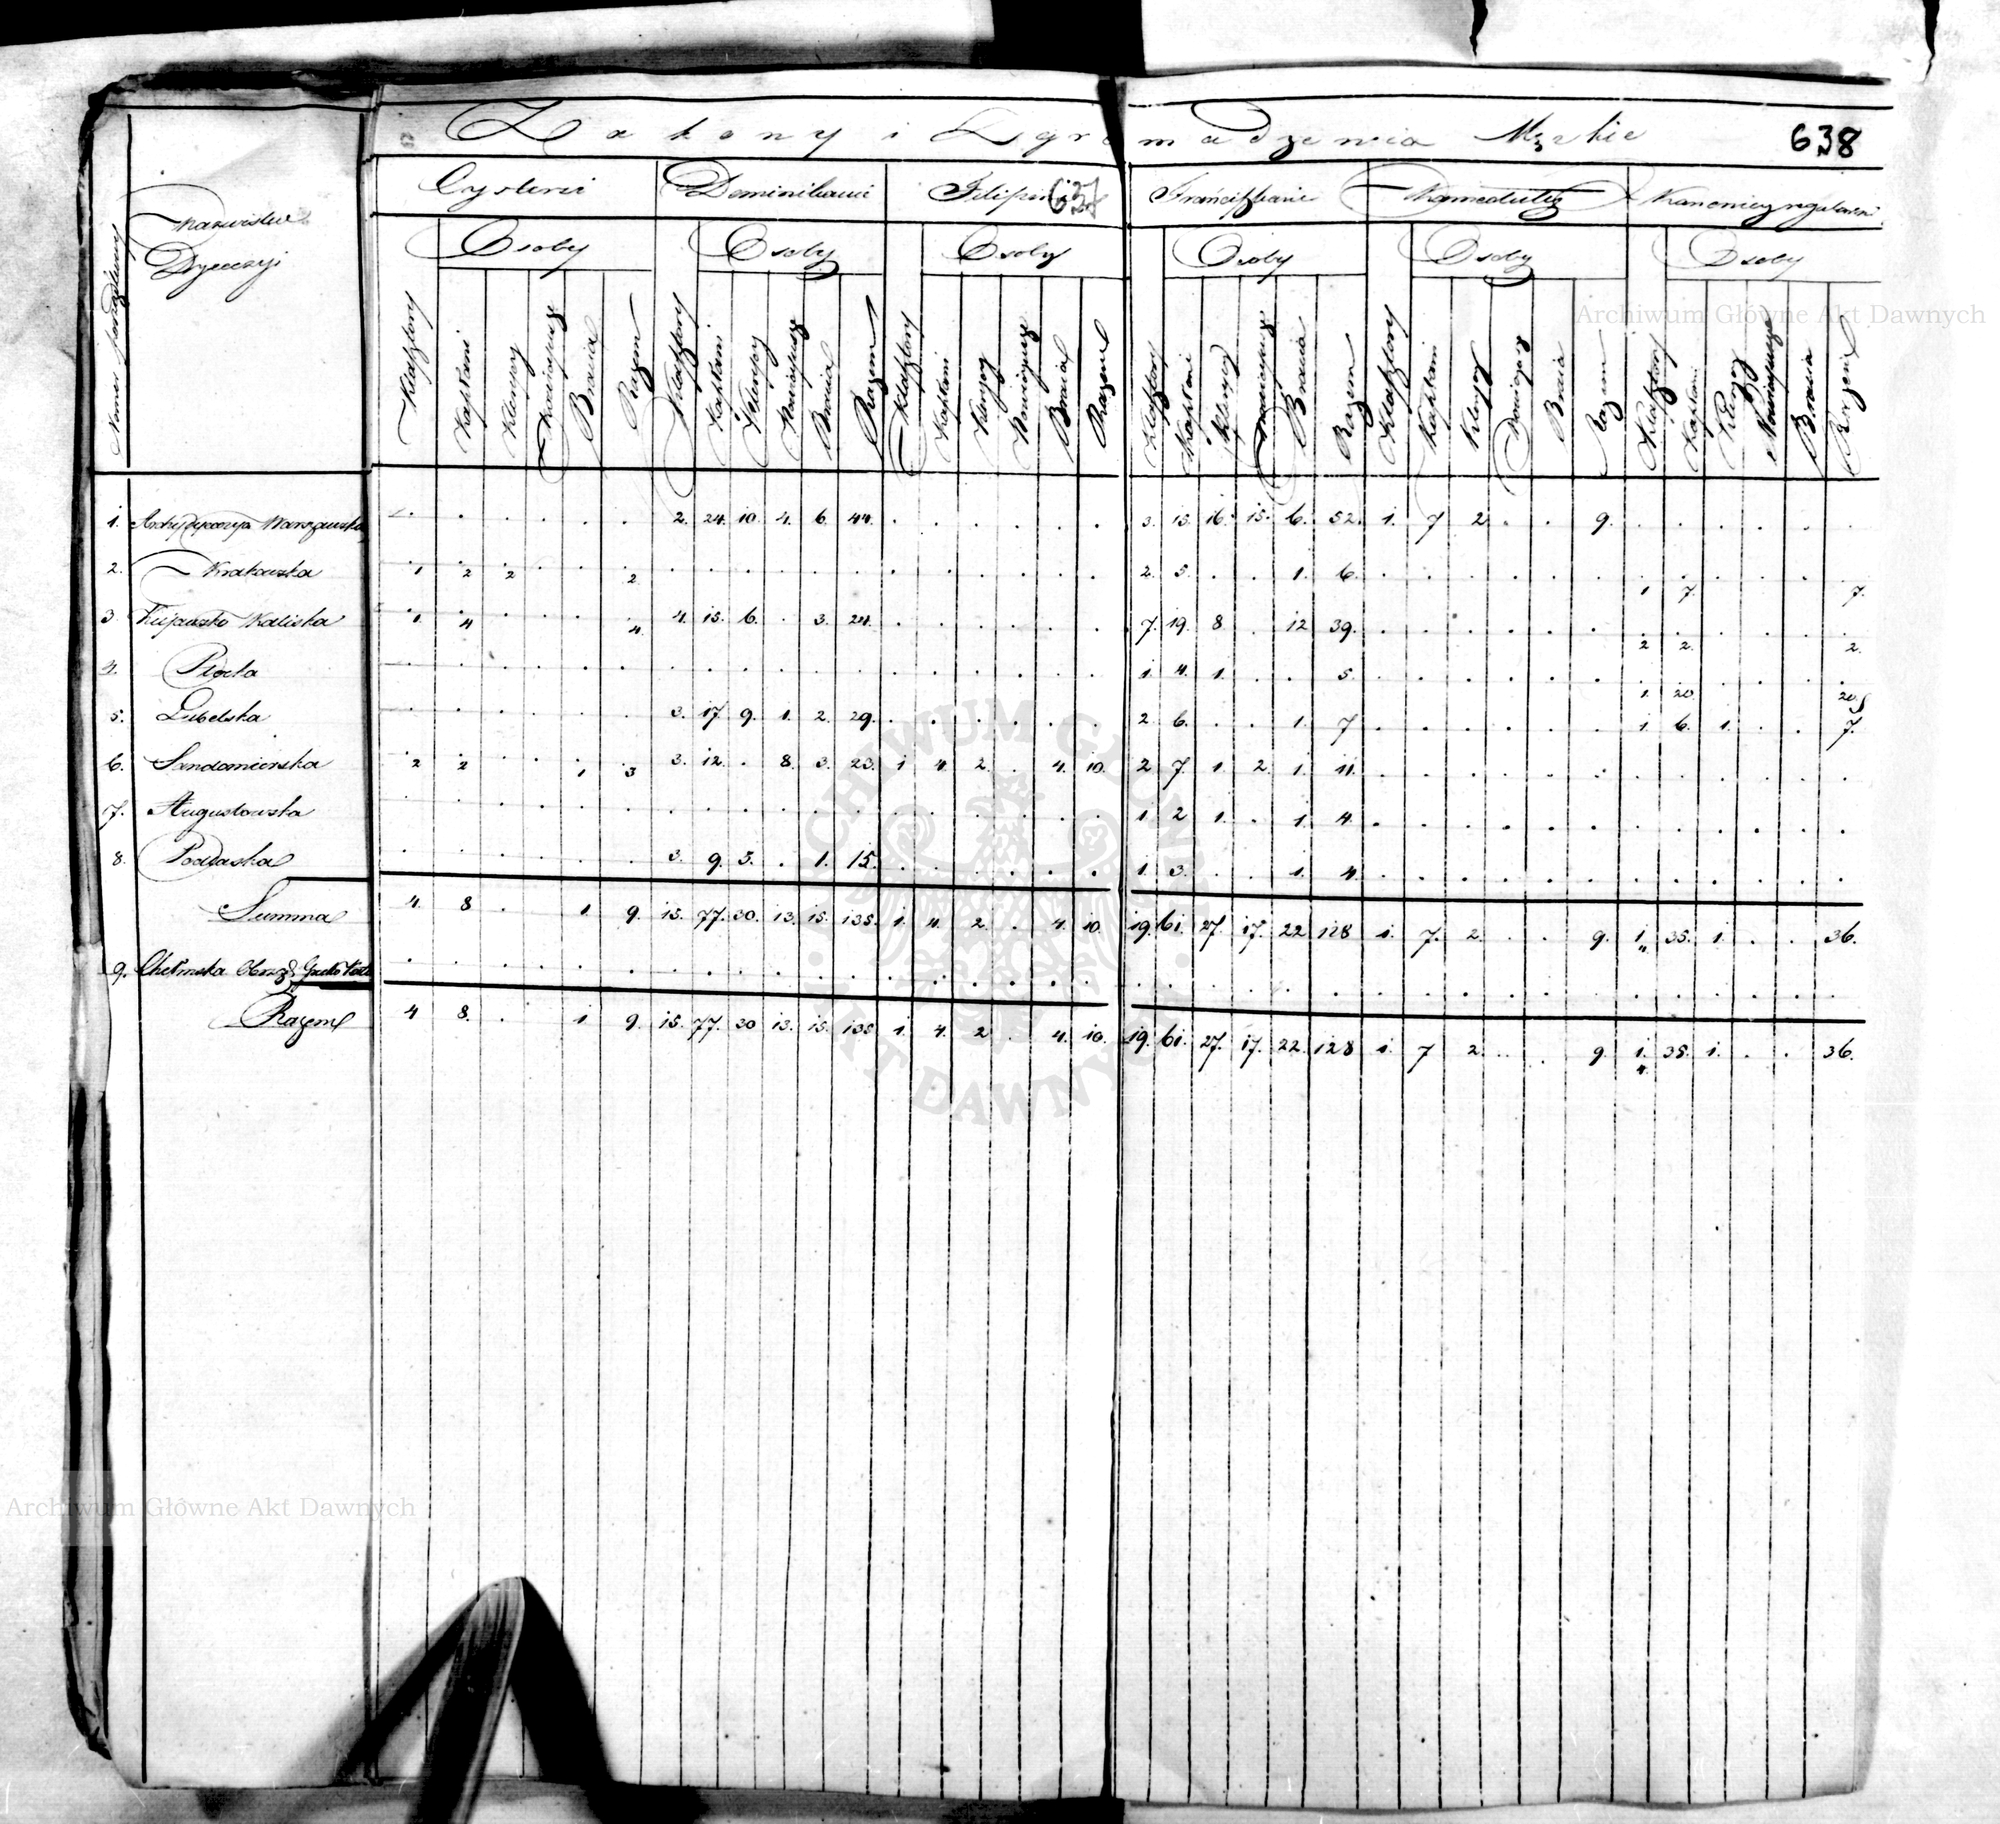 Zakony i Zgromadzenia Męzkie 638
Cystersi Dominikanie Filipini 637 Franciszkanie Kameduli Kanonicy regularni
Numer porządkowy Nazwisko Dyecezyi
Osoby Osoby Osoby Osoby Osoby Osoby
Klasztory Kapłani Klerycy Nowicyusze Bracia Razem Klasztory Kapłani Klerycy Nowicyusze Bracia Razem Klasztory Kapłani Klerycy Nowicyusze Bracia Razem Klasztory Kapłani Klerycy Nowicyusze Bracia Razem Klasztory Kapłani Klerycy Nowicyusze Bracia Razem Klasztory Kapłani Klerycy Nowicyusze Bracia Razem
1. Archidyecezya Warszawska . . . . . . 2. 24. 10. 4. 6. 44. . . . . . . 3. 15. 16. 15. 6. 52. 1. 7 2 . . 9. . . . . . .
2. Krakowska 1 2 2 . . 2 . . . . . . . . . . . . 2. 5. . . 1. 6. . . . . . . 1 7. . . . 7.
3 Kujawsko Kaliska 1 4 . . . 4. 4. 15. 6. . 3. 24. . . . . . . 7. 19. 8 . 12 39. . . . . . . 2 2. . . . 2.
4. Płocka . . . . . . . . . . . . . . . . . . 1 4. 1. . . 5. . . . . . . 1. 20 . . . 20.
5. Lubelska . . . . . . 3. 17 9. 1. 2. 29. . . . . . . 2. 6. . . 1. 7 . . . . . . 1 6. 1. . . 7.
6. Sandomierska 2 2 . . 1 3 3. 12. . 8. 3. 23. 1 4. 2. . 4. 10. 2 7. 1. 2. 1. 11. . . . . . . . . . . . .
7. Augustowska . . . . . . . . . . . . . . . . . . 1 2 1. . 1. 4. . . . . . . . . . . . .
8. Podlaska . . . . . . 3. 9. 5. . 1. 15. . . . . . . 1. 3. . . 1. 4. . . . . . . . . . . . .
Summa 4. 8 . . 1. 9. 15. 77. 30. 13. 15. 135. 1. 4. 2. . 4. 10. 19. 61. 27. 17. 22 128 1. 7. 2. . . 9. 35. 1. . . 36.
9. Chełmska Obrz. Grecko . . . . . . . . . . . . . . . . . . . . . . . . . . . . . . . . . . . .
Razem 4 8. . . 1 9. 15. 77. 30 13. 15. 135 1. 4. 2 . 4. 10. 19. 61. 27. 17. 22. 128 1. 7 2. . . 9. 35. 1. . . 36.
Archiwum Główne Akt Dawnych
ARCHIWUM GŁÓWNE AKT DAWNYCH
Archiwum Główne Akt Dawnych